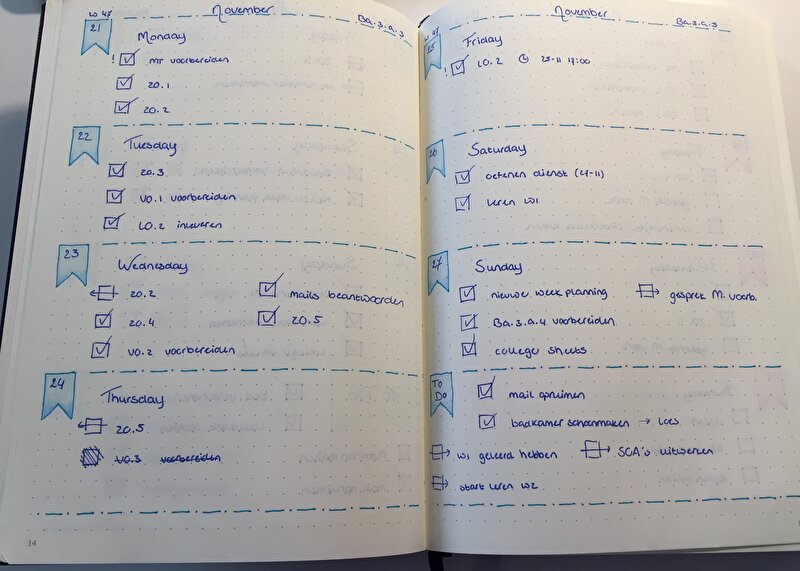 W 47 November Ba.3.a.3
21 Monday
! MT voorbereiden
zo.1
zo.2
22 Tuesday
zo.3
VO.1 voorbereiden
LO.2 inleveren
23 Wednesday
zo.2 mails beantwoorden
zo.4 zo.5
VO.2 voorbereiden
24 Thursday
zo.5
VO.3 voorbereiden
14
W 47 November Ba.3.a.3
25 Friday
! LO.2 25-11 17:00
26 Saturday
oefenen dienst (27-11)
leren W1
27 Sunday
nieuwe week planning gesprek M. voorb.
Ba.3.a.4 voorbereiden
college sheets
To Do
mail opruimen
badkamer schoonmaken → Loes
W1 geleerd hebben SOA's uitwerken
start leren W2